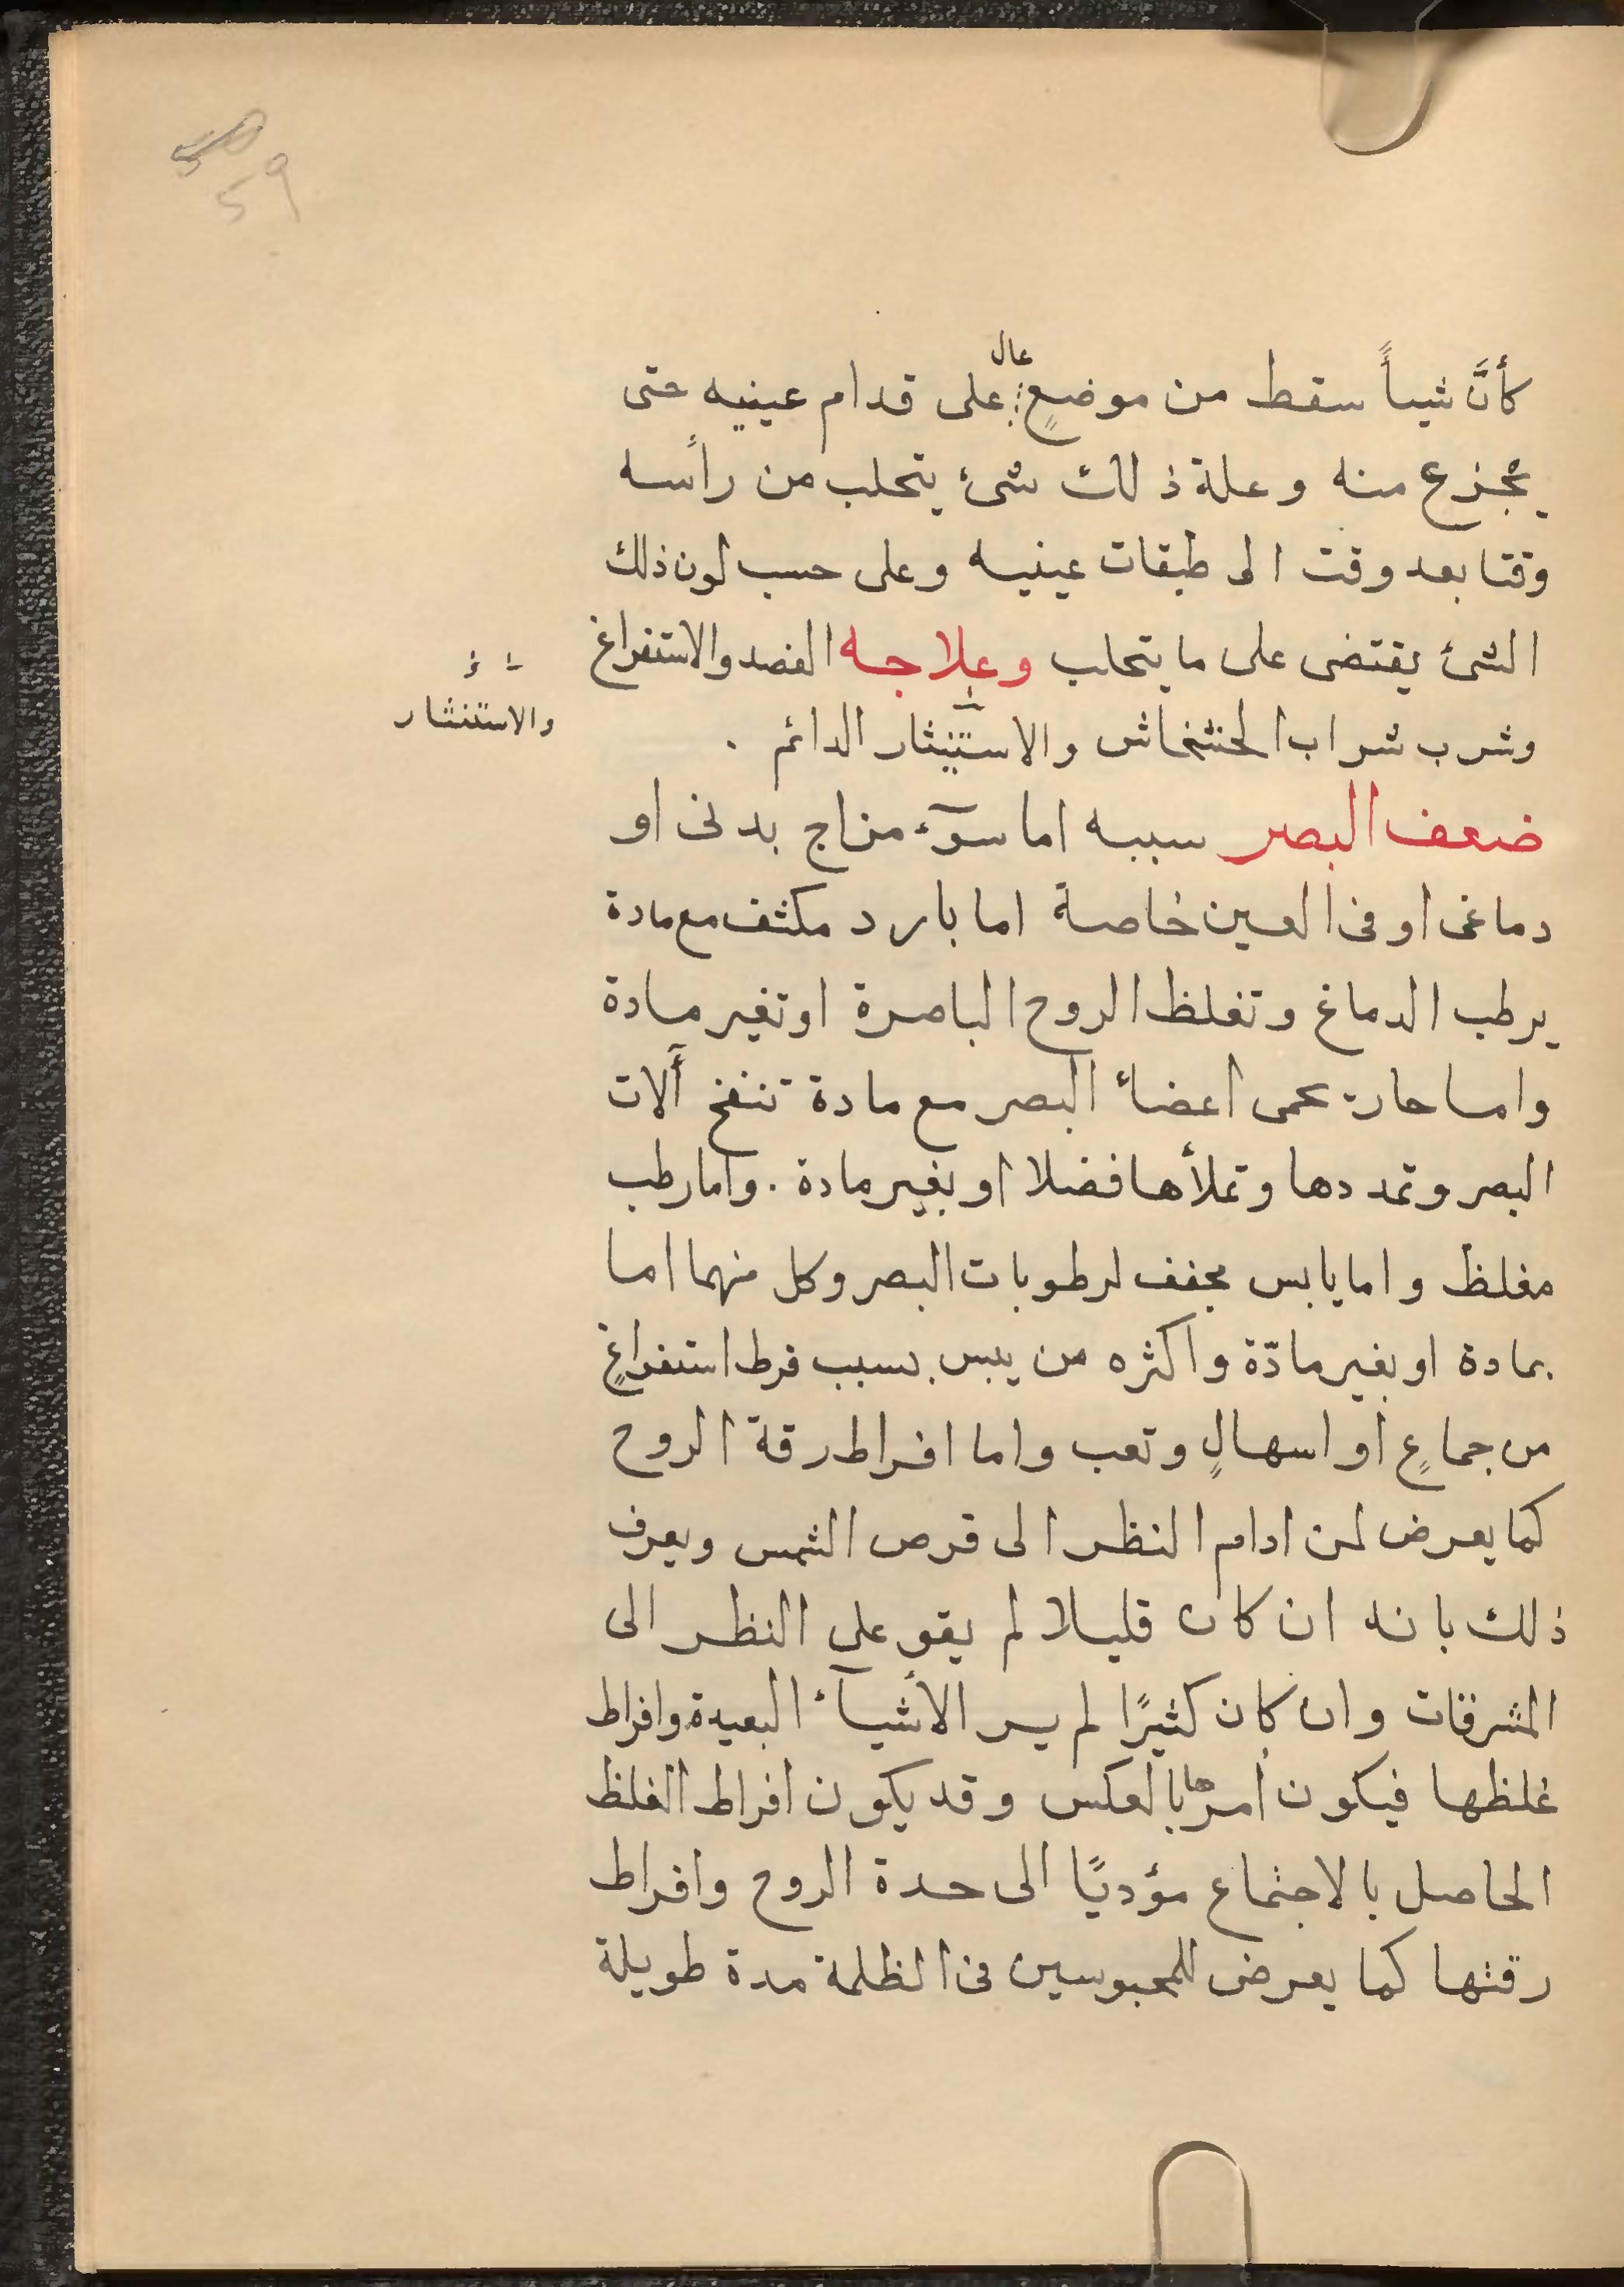 59
كأنَّ شيأً سقط من موضعٍ عال على قدام عينيه حتى
يجزع منه وعلة ذلك شئ يتحلب من رأسه
وقتا بعد وقت الى طبقات عينيه وعلى حسب لون ذلك
الشئ يقتضى على ما يتحلب وعلاجه الفصد والاستفراغ
وشرب شراب الخشخاش والاستنثار الدائم .
والاستنثار
ضعف البصر سببه اما سوٓء مزاج بدنى او
دماغى او فى العين خاصة اما بارد مكثف مع مادة
يرطب الدماغ وتغلظ الروح الباصرة او تغير مادة
واما حار يحمى اعضاء البصر مع مادة تنفخ ألات
البصر وتمددها وتملأها فضلا او بغير مادة . واما رطب
مغلظ واما يابس مجفف لرطوبات البصر وكل منهما اما
بمادة او بغير مادّة واكثره من يبس بسبب فرط استفراغٍ
من جماعٍ او اسهالٍ وتعب واما افراط رقة الروح
كما يعرض لمن ادام النظر الى قرص الشمس ويعرف
ذلك بانه ان كان قليلا لم يقو على النظر الى
المشرقات وان كان كثيرًا لم ير الأشيآء البعيدة وافراط
غلظها فيكون امرها بالعكس وقد يكون افراط الغلظ
الحاصل بالاجتماع مؤديًا الى حدة الروح وافراط
رقتها كما يعرض للمحبوسين فى الظلمة مدة طويلة